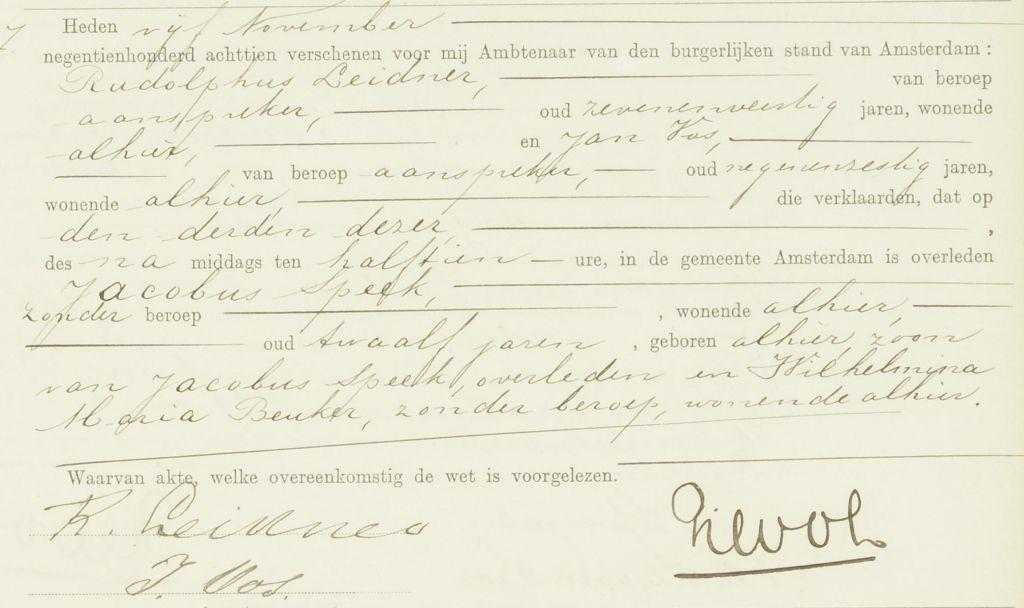 Heden vijf November
negentienhonderd achttien verschenen voor mij Ambtenaar van den burgerlijken stand van Amsterdam :
Rudolphus Leidner, van beroep
aanspreker, oud zevenenveertig jaren, wonende
alhier, en Jan Vos,
van beroep aanspreker, oud negenenzestig jaren,
wonende alhier, die verklaarden, dat op
den derden dezer, ,
des na middags ten halftien ure, in de gemeente Amsterdam is overleden
Jacobus Speek,
zonder beroep , wonende alhier,
oud twaalf jaren , geboren alhier, zoon
van Jacobus Speek, overleden en Wilhelmina
Maria Beuker, zonder beroep, wonende alhier.
Waarvan akte, welke overeenkomstig de wet is voorgelezen.
R. Leidner
J. Vos.